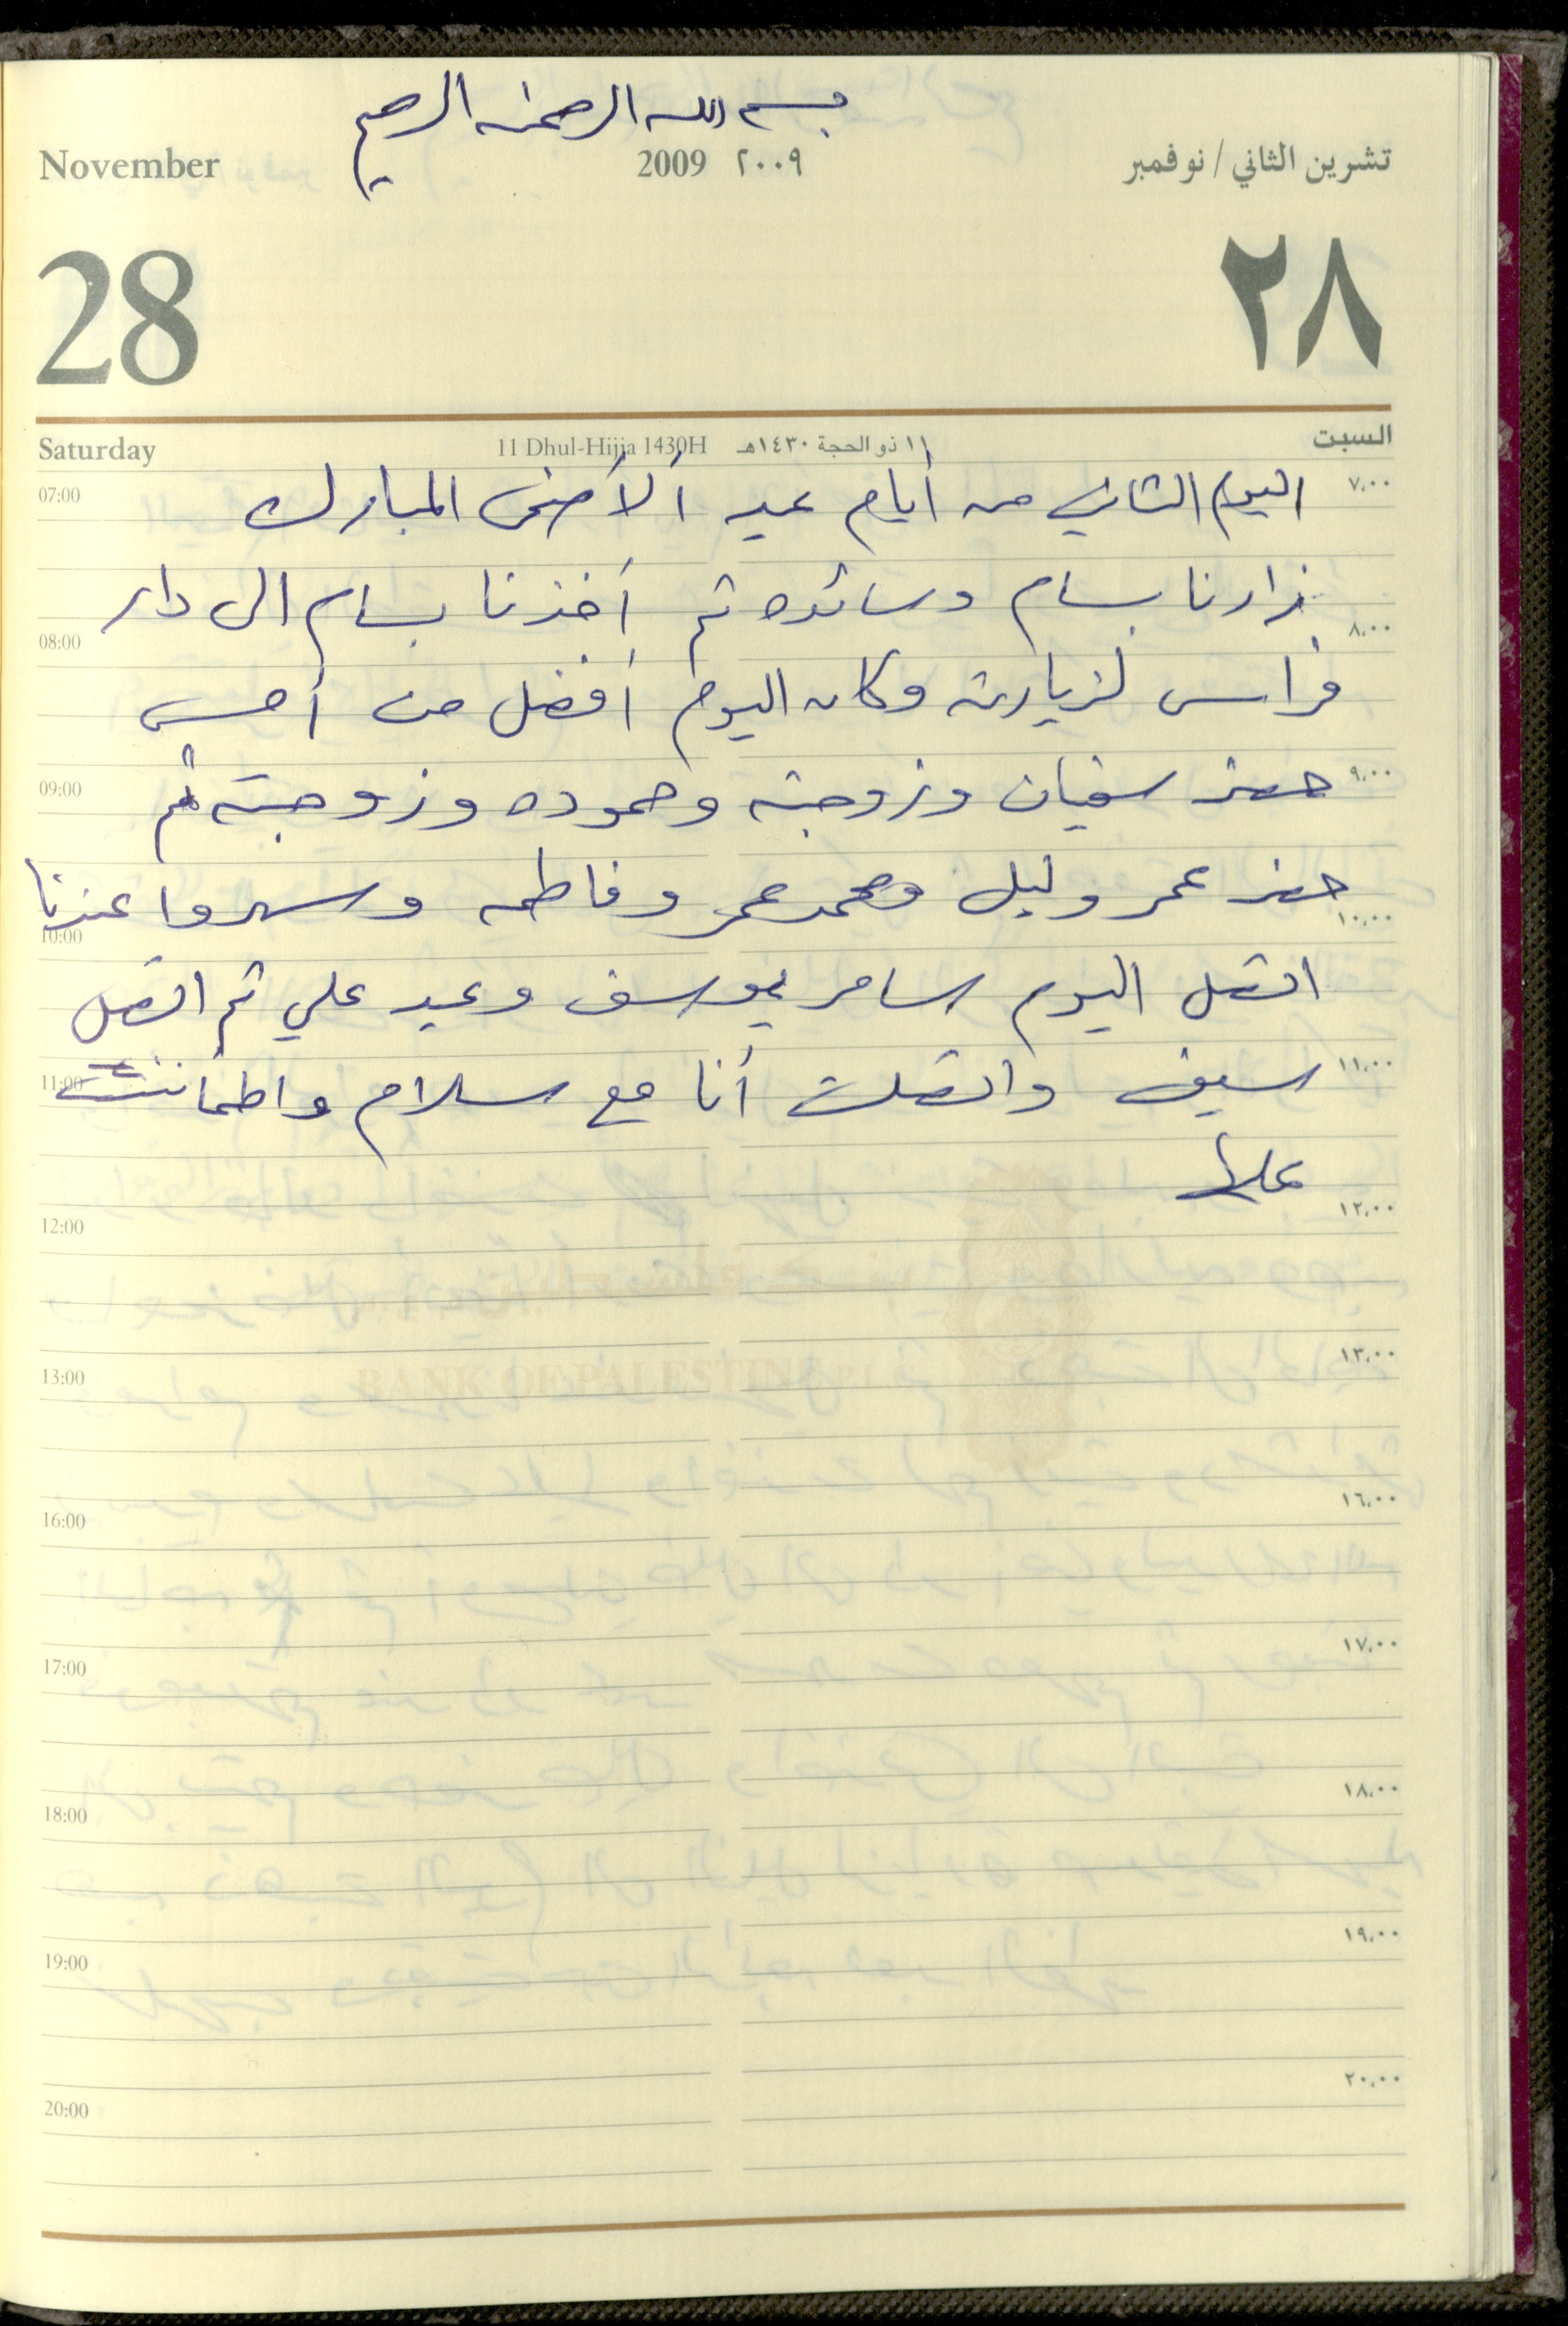 بسم الله الرحمن الرحيم
November 2009 ٢٠٠٩ تشرين الثاني / نوفمبر
28 ٢٨
Saturday 11 Dhul-Hijja 1430H ١١ ذو الحجة ١٤٣٠هـ السبت
07:00 اليوم الثاني من أيام عيد ألأضحى المبارك ٧،٠٠
زارنا بسام وسائده ثم أخذنا بسام الى دار
08:00 ٨،٠٠
فراس لزيارته وكان اليوم أفضل من أمس
09:00 حضر سفيان وزوجته وحموده وزوجته ثم ٩،٠٠
حضر عمر وليل ومحمد عمر وفاطمه وسهروا عندنا
10:00 ١٠،٠٠
اتصل اليوم سامر يوسف وعيد علي ثم اتصل
11:00 سيف واتصلت أنا مع سلام واطمأننت ١١،٠٠
عليها
12:00 ١٢،٠٠
BANK OF PALESTINE P.L.C
13:00 ١٣،٠٠
16:00 ١٦،٠٠
17:00 ١٧،٠٠
18:00 ١٨،٠٠
19:00 ١٩،٠٠
20:00 ٢٠،٠٠